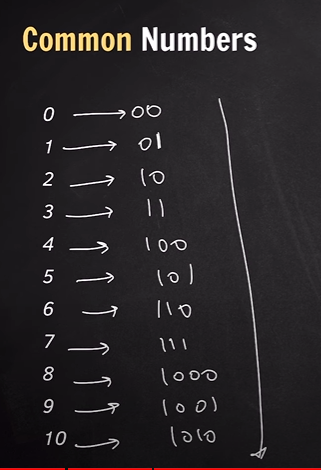 Common Numbers
0 → 00
1 → 01
2 → 10
3 → 11
4 → 100
5 → 101
6 → 110
7 → 111
8 → 1000
9 → 1001
10 → 1010